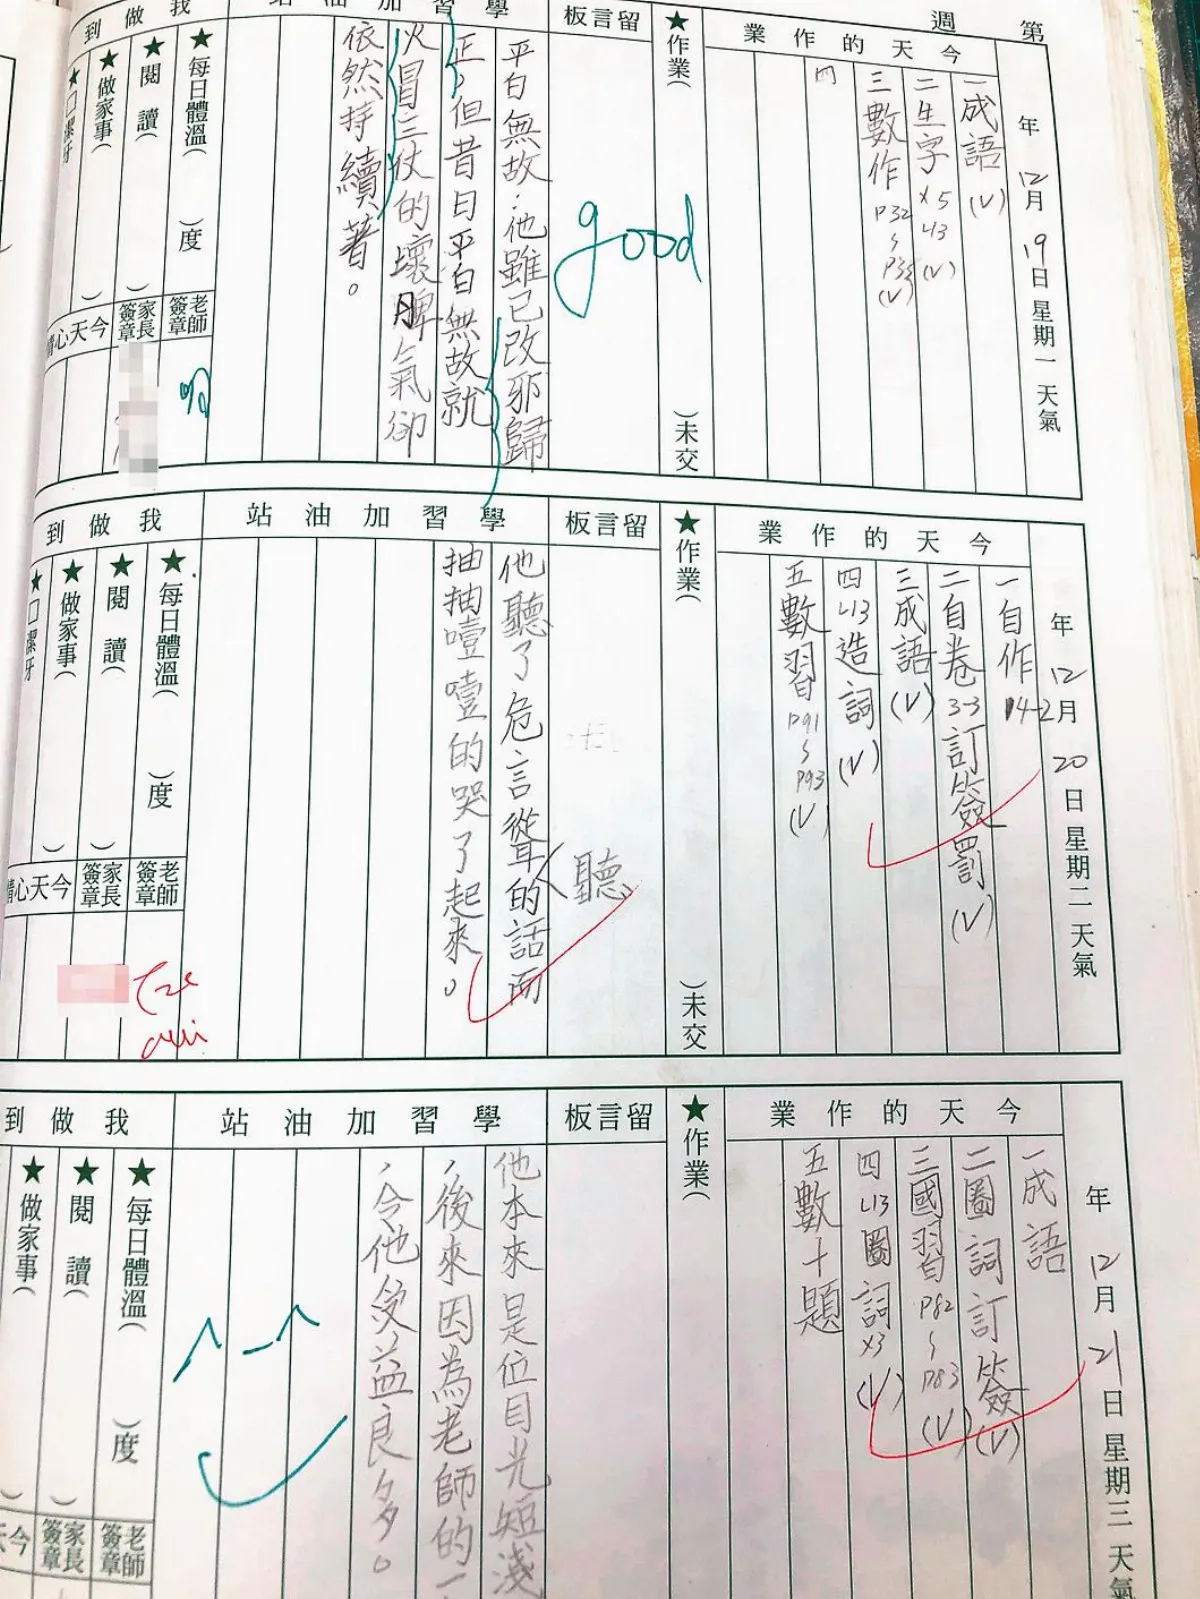 第 週
年 12月 19日 星期一 天氣
今天的作業
一成語(V)
二生字x5 L13(V)
三數作P32~P33(V)
四
★作業( )未交
留言板
good
學習加油站
平白無故:他雖已改邪歸
正,但昔日平白無故就
火冒三丈的壞脾氣卻
依然持續著。
我做到
★每日體溫( )度
★閱讀( )
★做家事( )
★□潔牙
老師簽章
家長簽章
今天心情
年 12月 20日 星期二 天氣
今天的作業
一自作14-2
二自卷3-3訂簽罰(V)
三成語(V)
四L13造詞(V)
五數習P91~P93(V)
★作業( )未交
留言板
聽
學習加油站
他聽了危言聳的話而
抽抽噎噎的哭了起來。
我做到
★每日體溫( )度
★閱讀( )
★做家事( )
★□潔牙
老師簽章
家長簽章
今天心情
年 12月 21日 星期三 天氣
今天的作業
一成語
二圈詞訂簽(V)
三國習P82~P83(V)
四L13圈詞x3(V)
五數十題
★作業(
留言板
學習加油站
他本來是位目光短淺
,後來因為老師的一
,令他受益良多。
我做到
★每日體溫( )度
★閱讀( )
★做家事( )
老師簽章
家長簽章
今天